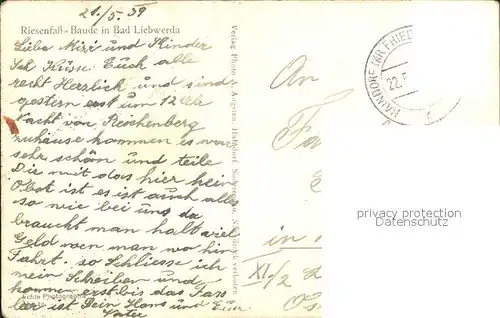 21./5. 39
Riesenfaß-Baude in Bad Liebwerda
Liebe Mizi und Kinder
Ich Küsse Euch alle
recht Herzlich und sind
gestern erst um 12 Uhr
Nacht von Reichenberg
zuhause kommen es war
sehr schön und teile
Dir mit das hier kein
Obst ist es ist auch alles
so wie bei uns da
braucht man halt viel
Geld wen man wo hin
Fährt. so Schliesse ich
mein Schreiben und
komme erst bis das Fass
leer ist Dein Hans und Euer
Vater
Echte Photographie
Verlag Photo
Haindorf
Nachdruck verboten
An
in
XI/2
HAINDORF (KR FRIED
22.
privacy protection
Datenschutz